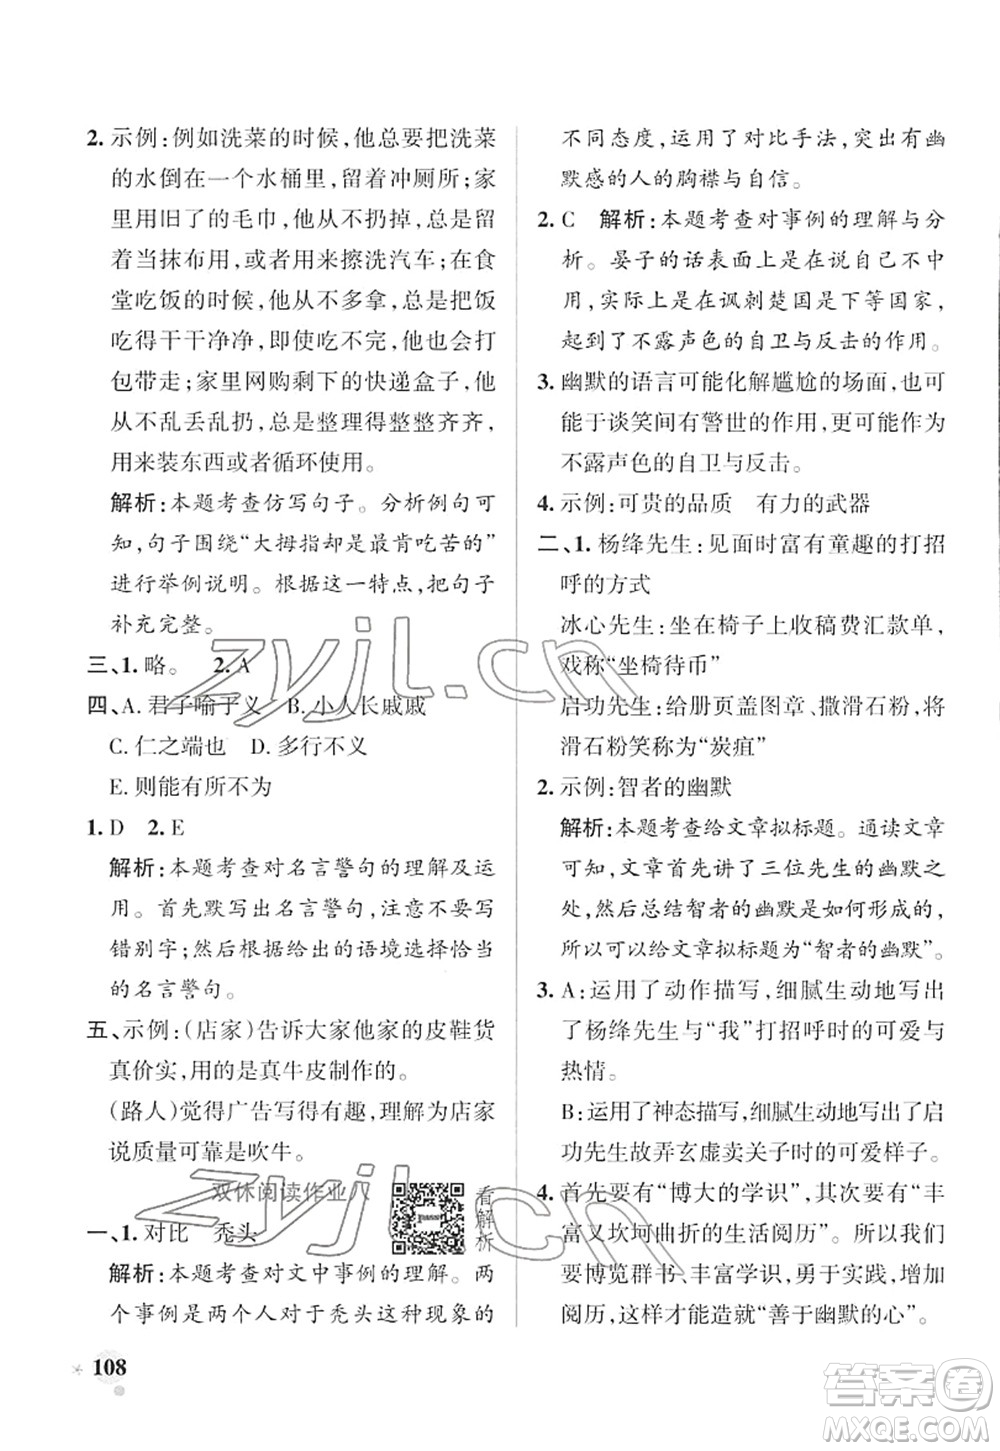 2. 示例:例如洗菜的时候,他总要把洗菜
的水倒在一个水桶里,留着冲厕所;家
里用旧了的毛巾,他从不扔掉,总是留
着当抹布用,或者用来擦洗汽车;在食
堂吃饭的时候,他从不多拿,总是把饭
吃得干干净净,即使吃不完,他也会打
包带走;家里网购剩下的快递盒子,他
从不乱丢乱扔,总是整理得整整齐齐,
用来装东西或者循环使用。
解析:本题考查仿写句子。分析例句可
知,句子围绕“大拇指却是最肯吃苦的”
进行举例说明。根据这一特点,把句子
补充完整。
三、1. 略。 2. A
四、A. 君子喻于义 B. 小人长戚戚
C. 仁之端也 D. 多行不义
E. 则能有所不为
1. D 2. E
解析:本题考查对名言警句的理解及运
用。首先默写出名言警句,注意不要写
错别字;然后根据给出的语境选择恰当
的名言警句。
五、示例:(店家)告诉大家他家的皮鞋货
真价实,用的是真牛皮制作的。
(路人)觉得广告写得有趣,理解为店家
说质量可靠是吹牛。
双休阅读作业八
看解析
一、1. 对比 秃头
解析:本题考查对文中事例的理解。两
个事例是两个人对于秃头这种现象的
108
不同态度,运用了对比手法,突出有幽
默感的人的胸襟与自信。
2. C 解析:本题考查对事例的理解与分
析。晏子的话表面上是在说自己不中
用,实际上是在讽刺楚国是下等国家,
是一种不露声色的自卫与反击。
3. 幽默的语言可能化解尴尬的场面,也可
能于谈笑间有警世的作用,更可能作为
不露声色的自卫与反击。
4. 示例:可贵的品质 有力的武器
二、1. 杨绛先生:见面时富有童趣的打招
呼的方式
冰心先生:坐在椅子上收稿费汇款单,
戏称“坐椅待币”
启功先生:给册页盖图章、撒滑石粉,将
滑石粉笑称为“炭疽”
2. 示例:智者的幽默
解析:本题考查给文章拟标题。通读文章
可知,文章首先讲了三位先生的幽默之
处,然后总结智者的幽默是如何形成的,
所以可以给文章拟标题为“智者的幽默”。
3. A:运用了动作描写,细腻生动地写出
了杨绛先生与“我”打招呼时的可爱与
热情。
B:运用了神态描写,细腻生动地写出了启
功先生故弄玄虚卖关子时的可爱样子。
4. 首先要有“博大的学识”,还要有“丰
富又坎坷曲折的生活阅历”。所以我们
要博览群书、丰富学识,勇于实践,增加
阅历,这样才能造就“善于幽默的心”。
zyjl.cn
zyjl.cn
答案圈
MXQE.COM